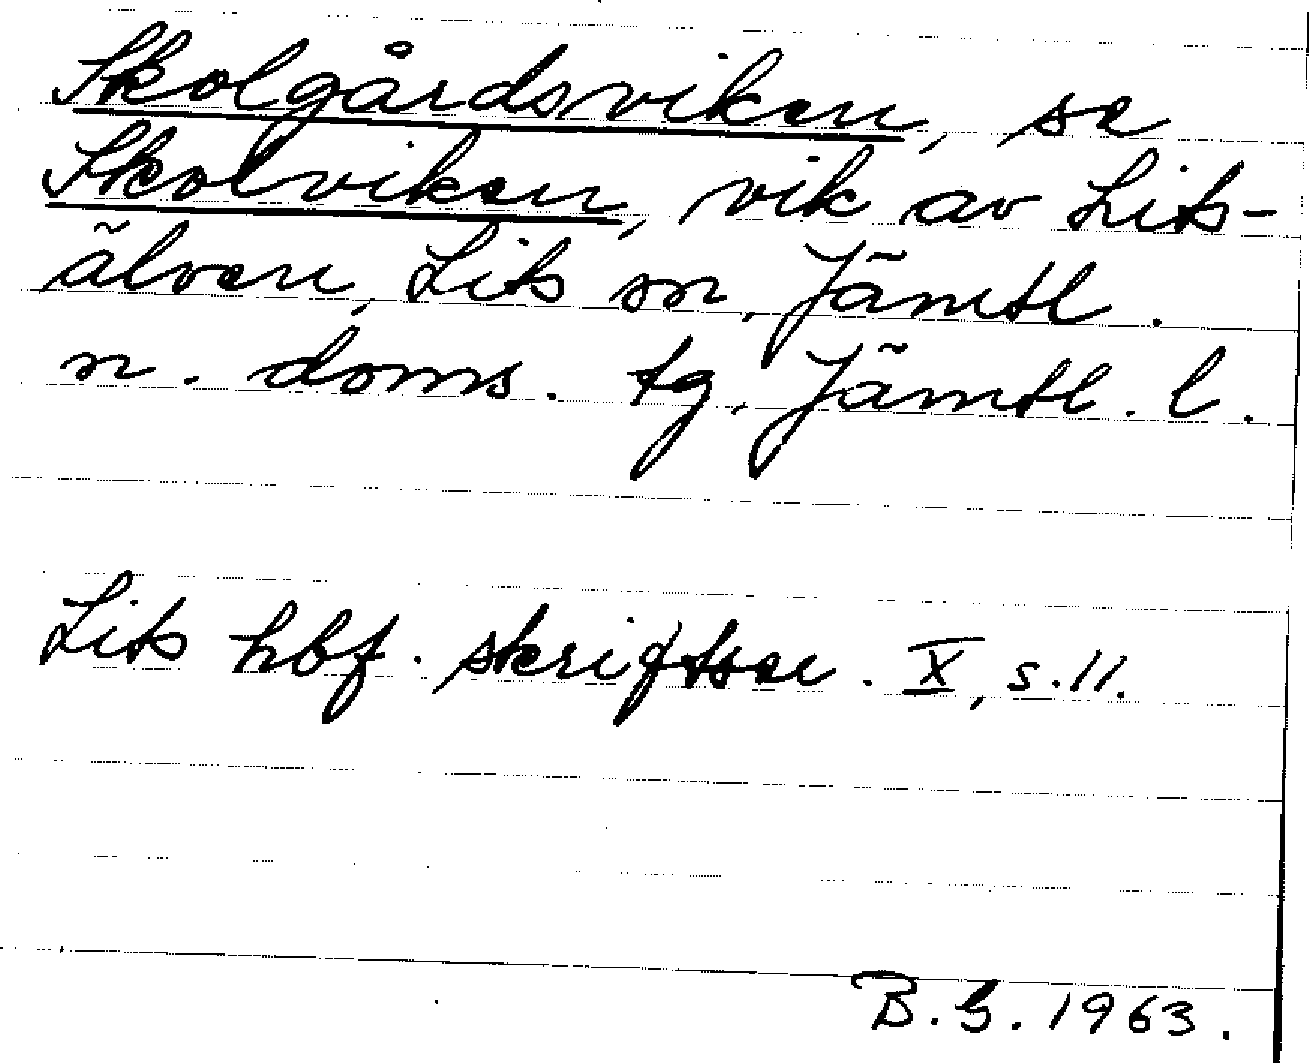 Skolgårdsviken, se
Skolviken, vik av Lits-
älven, Lits sn, Jämtl.
n. doms. tg, Jämtl. l.
Lits hbf. skriftser. X, s. 11.
B.G. 1963.